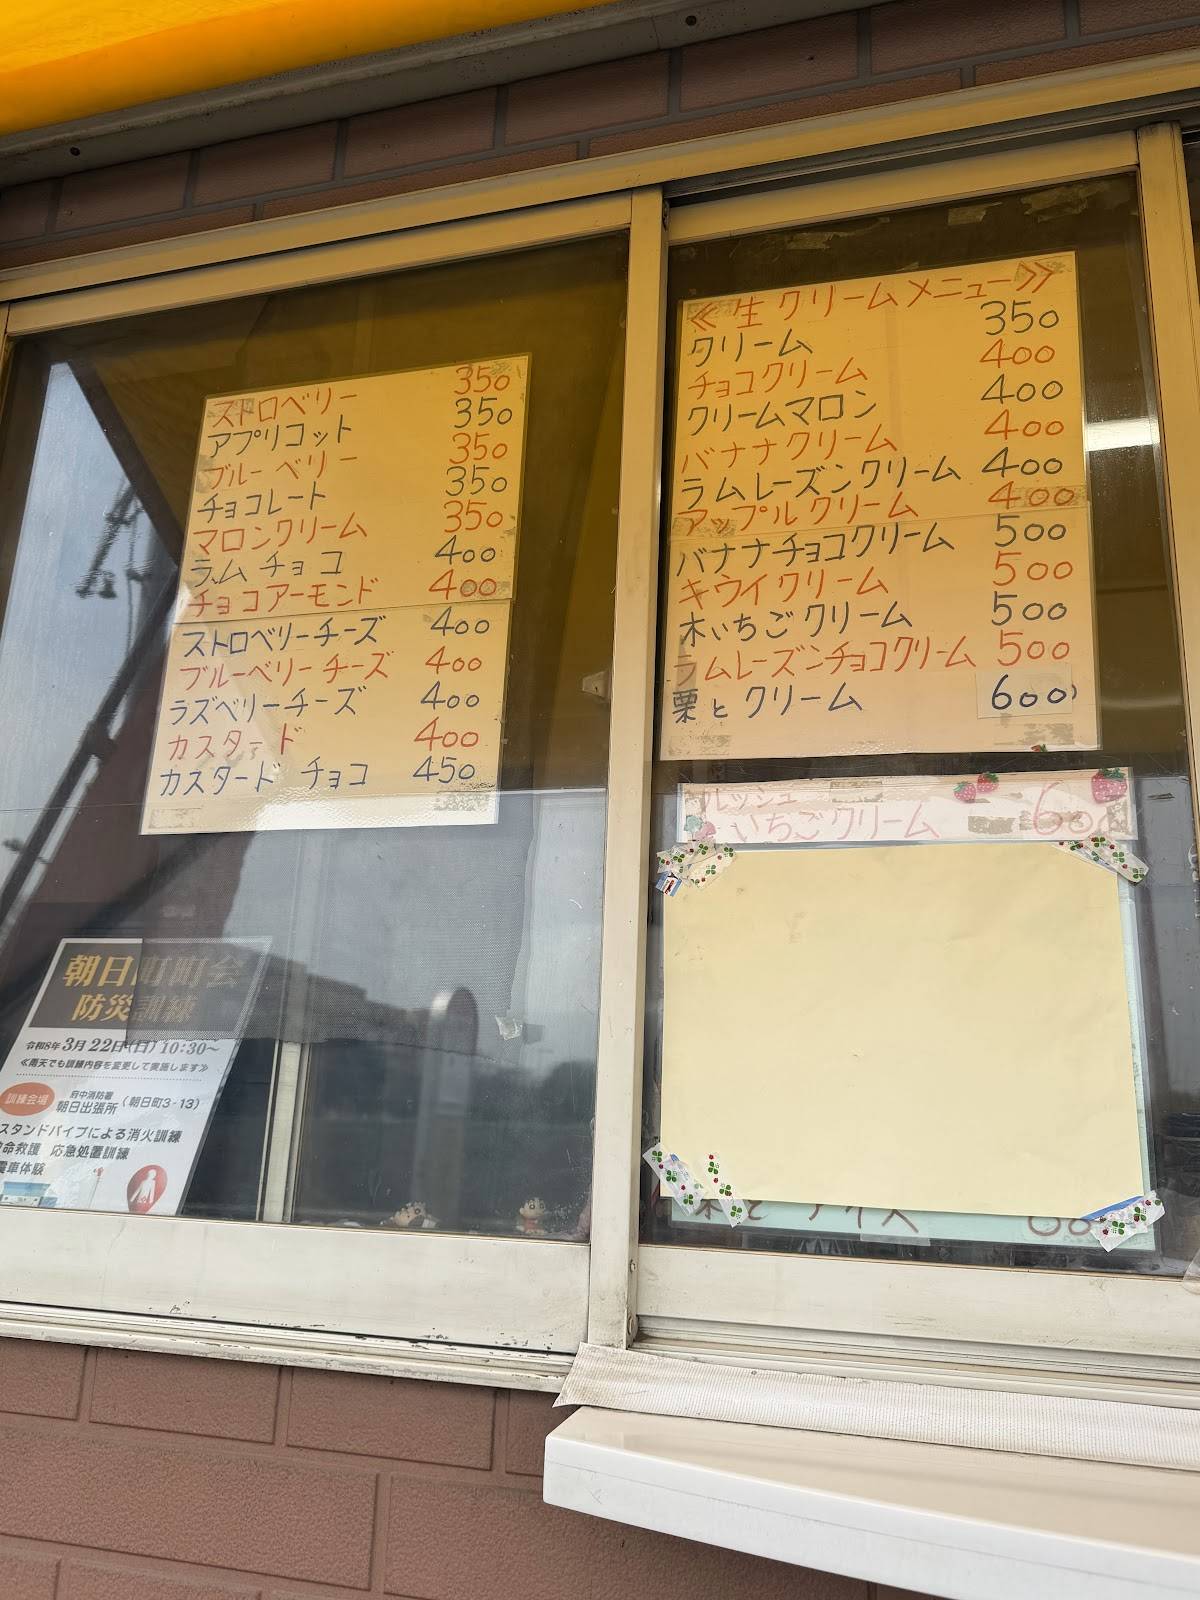 ストロベリー 350
アプリコット 350
ブルーベリー 350
チョコレート 350
マロンクリーム 350
ラムチョコ 400
チョコアーモンド 400
ストロベリーチーズ 400
ブルーベリーチーズ 400
ラズベリーチーズ 400
カスタード 400
カスタード チョコ 450
≪生クリームメニュー≫
クリーム 350
チョコクリーム 400
クリームマロン 400
バナナクリーム 400
ラムレーズンクリーム 400
アップルクリーム 400
バナナチョコクリーム 500
キウイクリーム 500
木いちごクリーム 500
ラムレーズンチョコクリーム 500
栗とクリーム 600
フレッシュ
いちごクリーム 600
朝日町町会
防災訓練
令和8年 3月22日(日) 10:30～
≪雨天でも訓練内容を変更して実施します≫
訓練会場
府中消防署
朝日出張所 (朝日町3-13)
スタンドパイプによる消火訓練
命救護 応急処置訓練
車体験